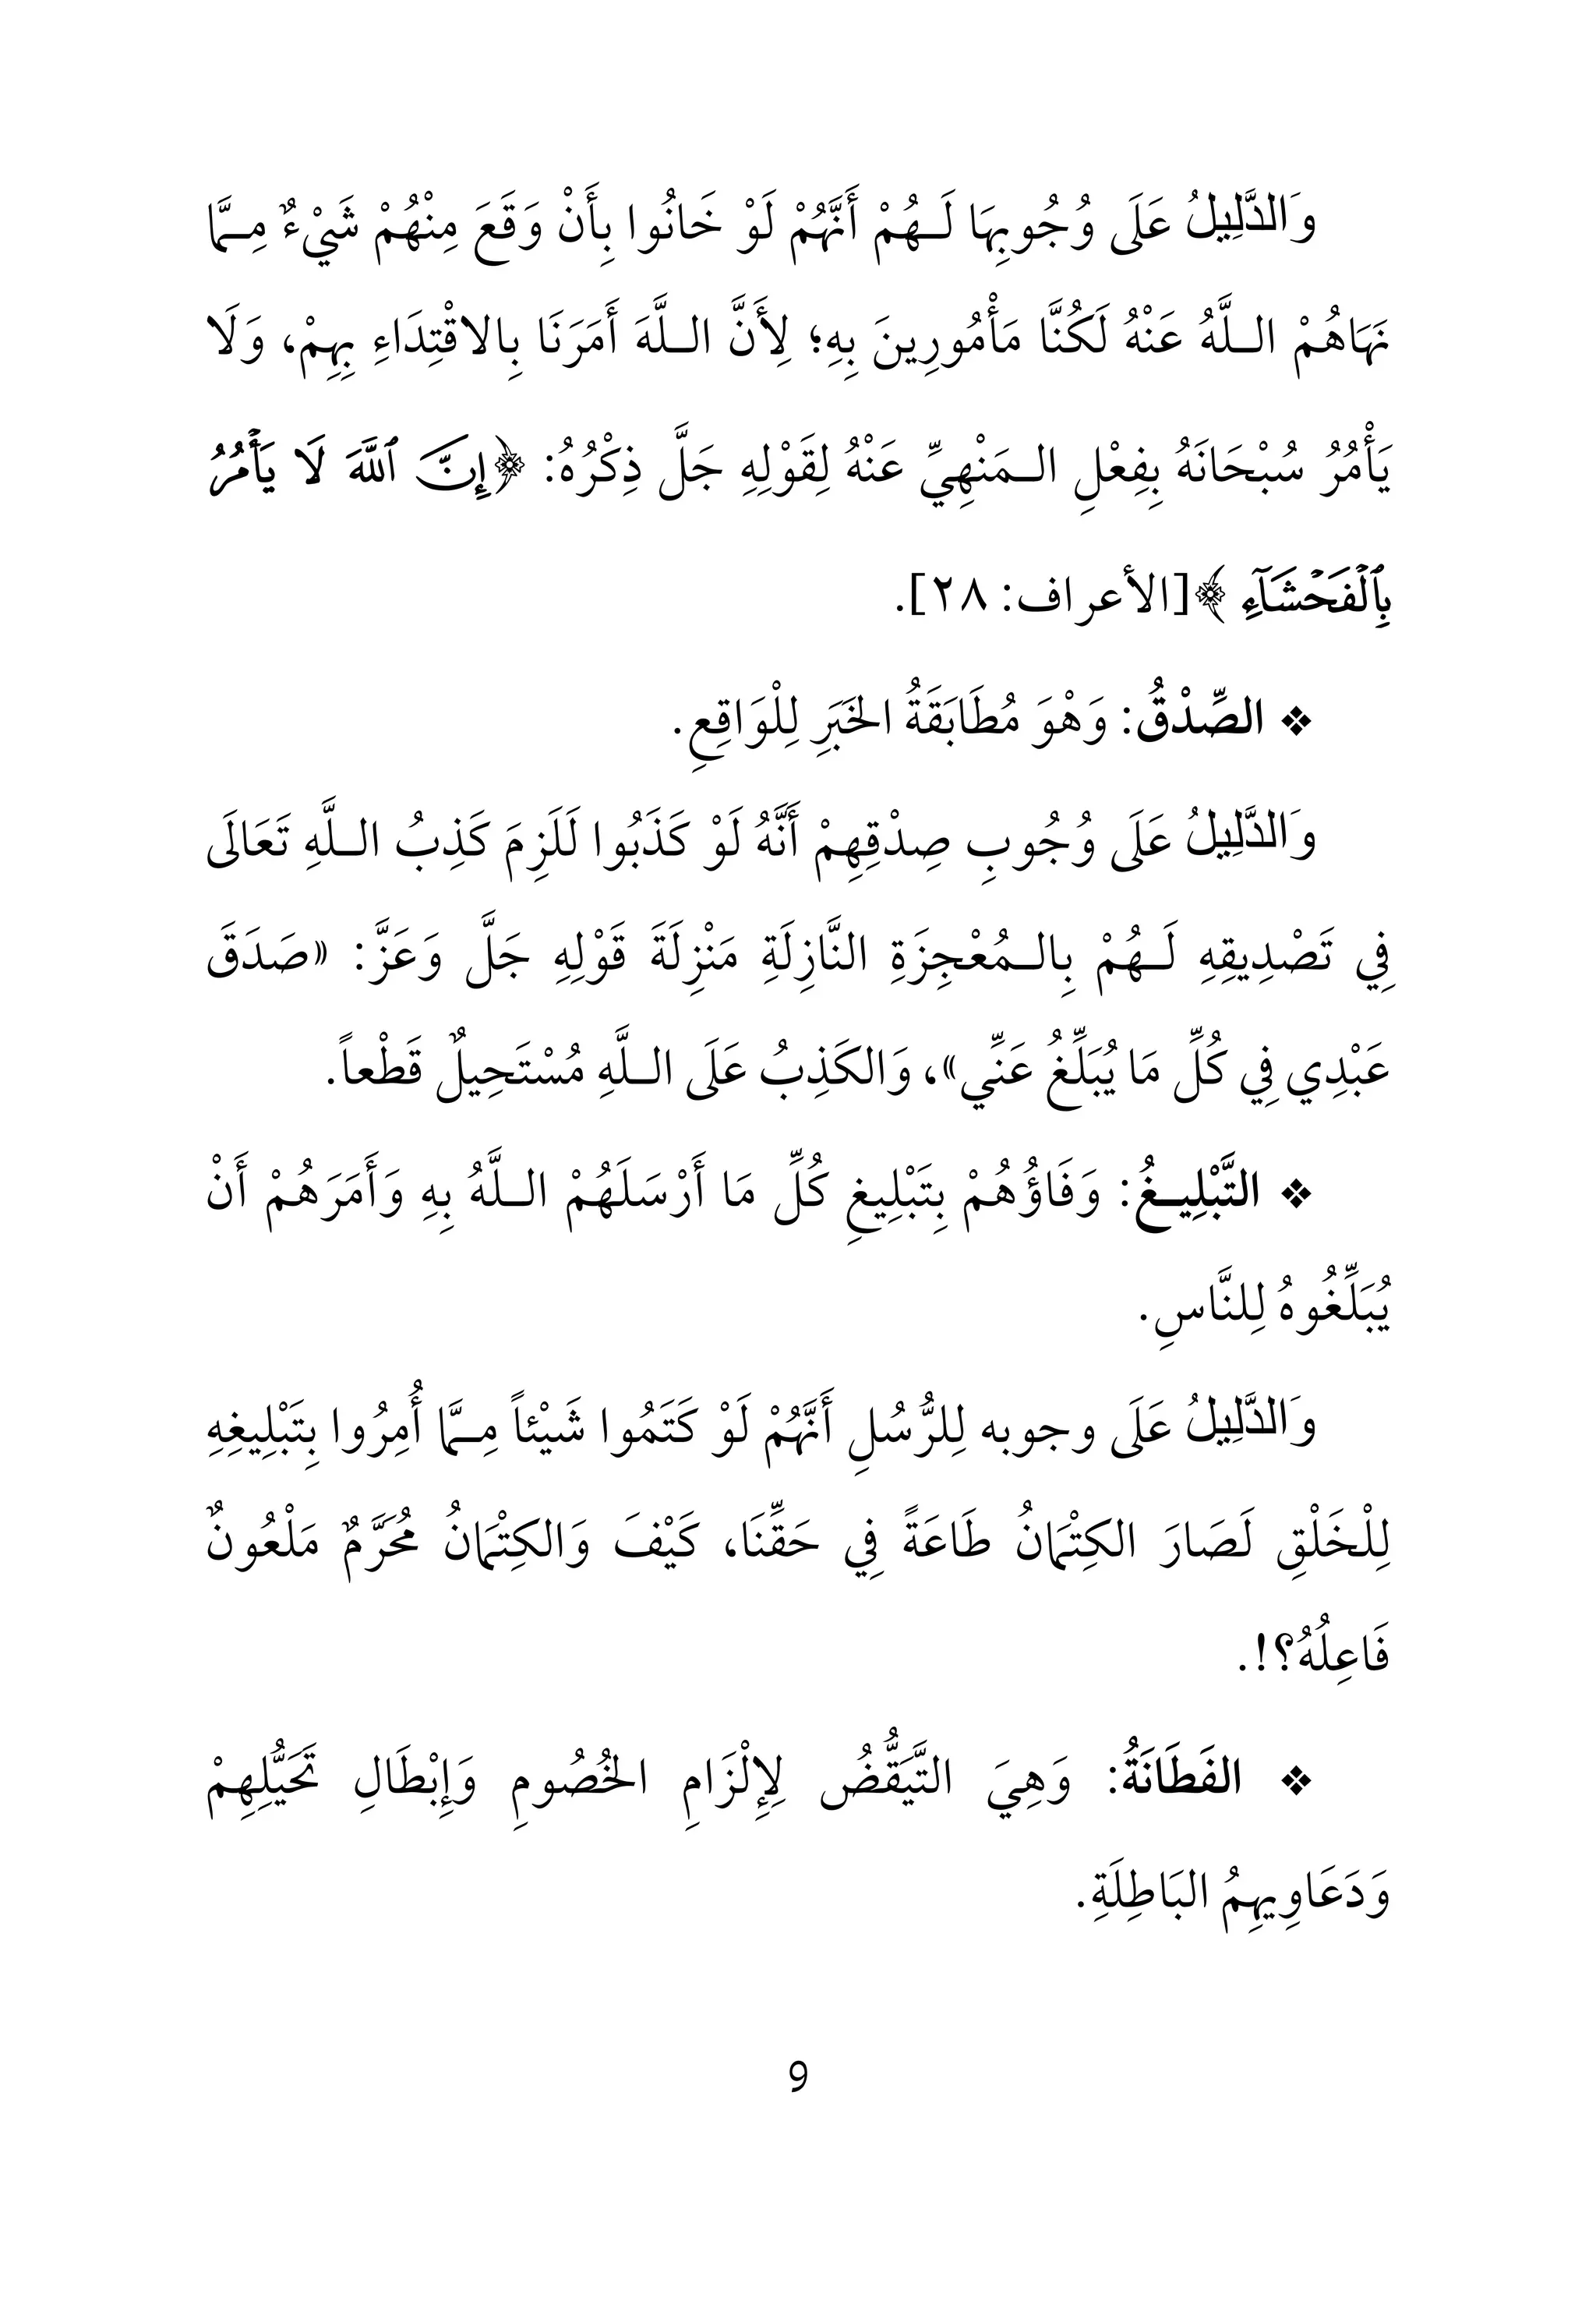 وَالدَّلِيلُ عَلَى وُجُوبِهَا لَـهُمْ أَنَّهُمْ لَوْ خَانُوا بِأَنْ وَقَعَ مِنْهُمْ شَيْءٌ مِـمَّا
نَهَاهُمْ الـلَّهُ عَنْهُ لَكُنَّا مَأْمُورِينَ بِهِ؛ لِأَنَّ الـلَّهَ أَمَرَنَا بِالاقْتِدَاءِ بِهِمْ، وَلَا
يَأْمُرُ سُبْحَانَهُ بِفِعْلِ الـمَنْهِيِّ عَنْهُ لِقَوْلِهِ جَلَّ ذِكْرُهُ: ﴿إِنَّ ٱللَّهَ لَا يَأۡمُرُ
بِٱلۡفَحۡشَآءِ ﴾[الأعراف: ٢٨].
❖ الصِّدْقُ: وَهْوَ مُطَابَقَةُ الخَبَرِ لِلْوَاقِعِ.
وَالدَّلِيلُ عَلَى وُجُوبِ صِدْقِهِمْ أَنَّهُ لَوْ كَذَبُوا لَلَزِمَ كَذِبُ الـلَّهِ تَعَالَى
فِي تَصْدِيقِهِ لَـهُمْ بِالـمُعْجِزَةِ النَّازِلَةِ مَنْزِلَةَ قَوْلِهِ جَلَّ وَعَزَّ: «صَدَقَ
عَبْدِي فِي كُلِّ مَا يُبَلِّغُ عَنِّي»، وَالكَذِبُ عَلَى الـلَّهِ مُسْتَحِيلٌ قَطْعاً.
❖ التَّبْلِيـغُ: وَفَاؤُهُمْ بِتَبْلِيغِ كُلِّ مَا أَرْسَلَهُمْ الـلَّهُ بِهِ وَأَمَرَهُمْ أَنْ
يُبَلِّغُوهُ لِلنَّاسِ.
وَالدَّلِيلُ عَلَى وجوبه لِلرُّسُلِ أَنَّهُمْ لَوْ كَتَمُوا شَيْئاً مِـمَّا أُمِرُوا بِتَبْلِيغِهِ
لِلْخَلْقِ لَصَارَ الكِتْمَانُ طَاعَةً فِي حَقِّنَا، كَيْفَ وَالكِتْمَانُ مُحَرَّمٌ مَلْعُونٌ
فَاعِلُهُ؟!.
❖ الفَطَانَةُ: وَهِيَ التَّيَقُّضُ لِإِلْزَامِ الخُصُومِ وَإِبْطَالِ تَحَيُّلِهِمْ
وَدَعَاوِيهِمُ البَاطِلَةِ.
9